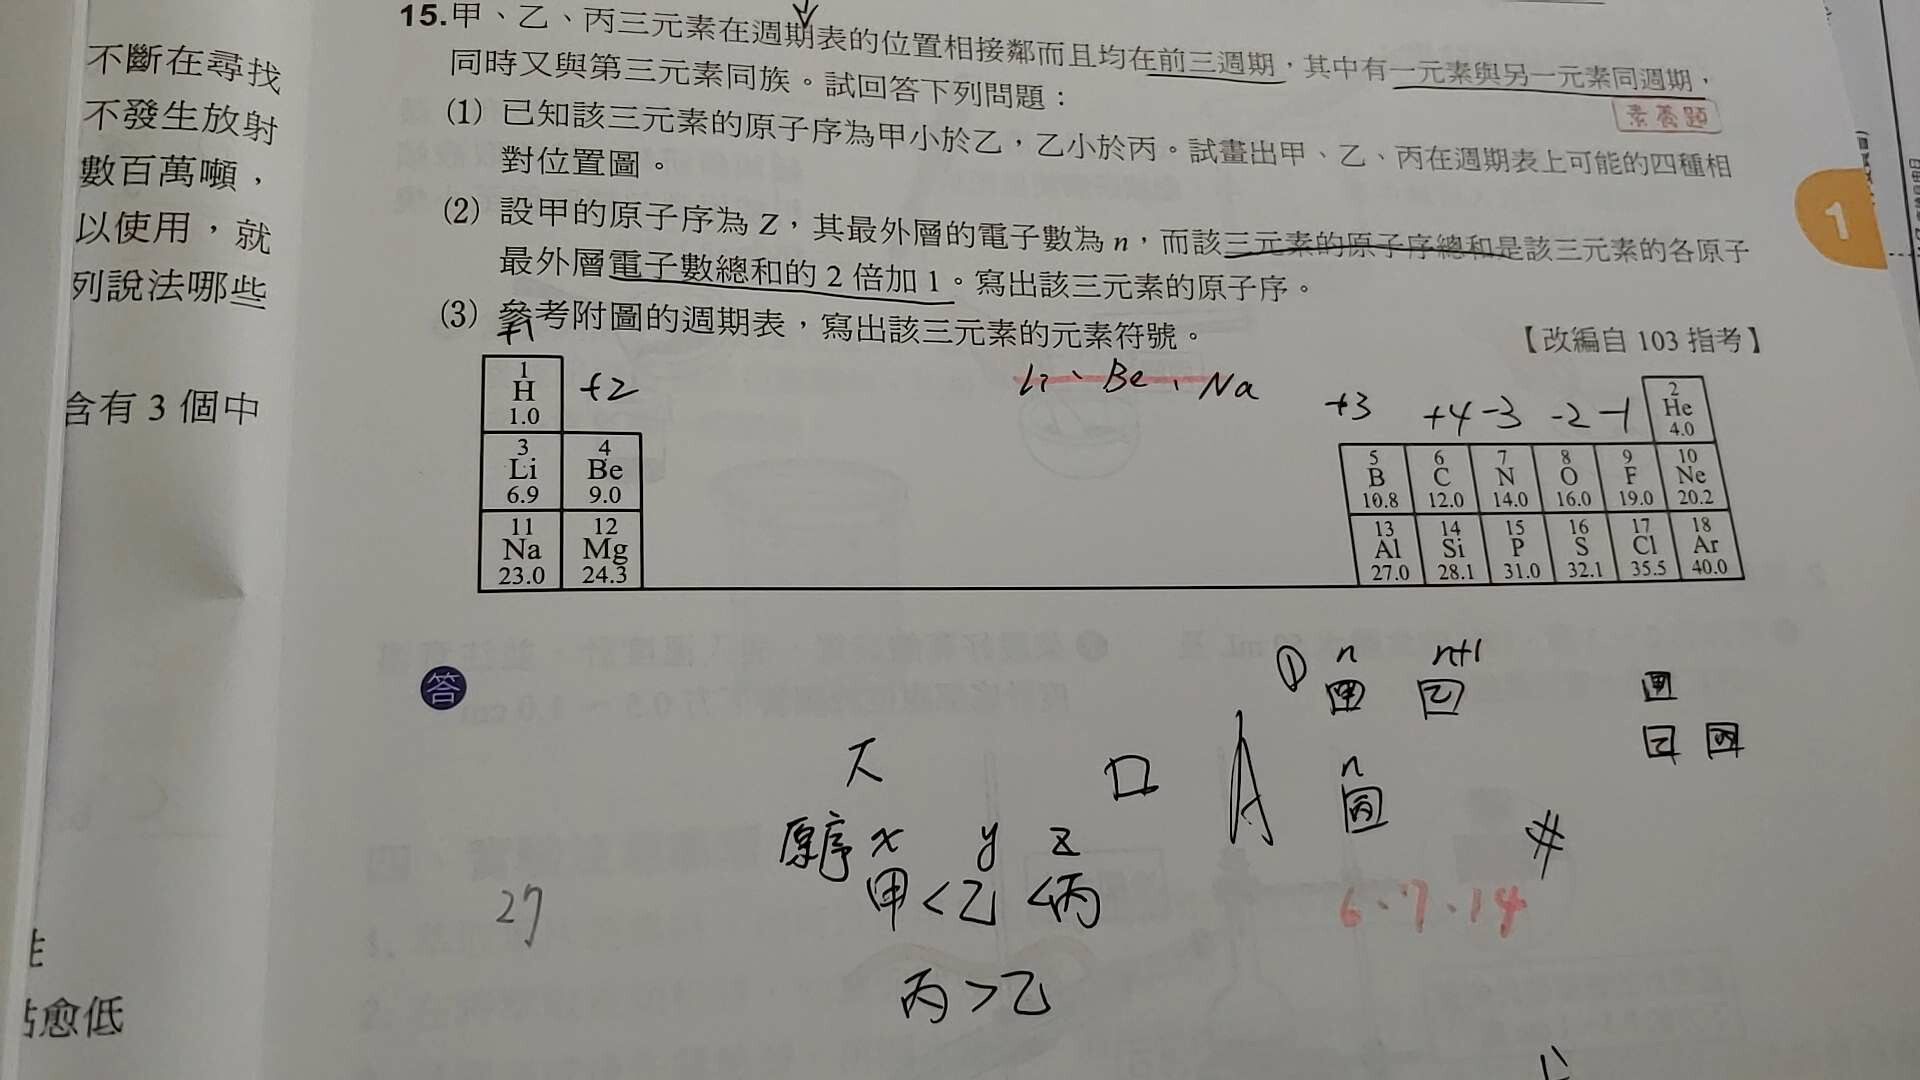 不斷在尋找
不發生放射
數百萬噸，
以使用，就
列說法哪些
含有 3 個中
愈低
15.甲、乙、丙三元素在週期表的位置相接鄰而且均在前三週期，其中有一元素與另一元素同週期，
同時又與第三元素同族。試回答下列問題：
素養題
(1) 已知該三元素的原子序為甲小於乙，乙小於丙。試畫出甲、乙、丙在週期表上可能的四種相
對位置圖。
(2) 設甲的原子序為 Z，其最外層的電子數為 n，而該三元素的原子序總和是該三元素的各原子
最外層電子數總和的 2 倍加 1。寫出該三元素的原子序。
(3) 參考附圖的週期表，寫出該三元素的元素符號。
【改編自 103 指考】
1
+1
+2
Li、Be、Na
+3 +4 -3 -2 -1
1 2
H He
1.0 4.0
3 4 5 6 7 8 9 10
Li Be B C N O F Ne
6.9 9.0 10.8 12.0 14.0 16.0 19.0 20.2
11 12 13 14 15 16 17 18
Na Mg Al Si P S Cl Ar
23.0 24.3 27.0 28.1 31.0 32.1 35.5 40.0
答
① n n+1
甲 乙
n
丙
甲
乙 丙
原序 x y z
甲<乙<丙
丙>乙
27
6、7、14